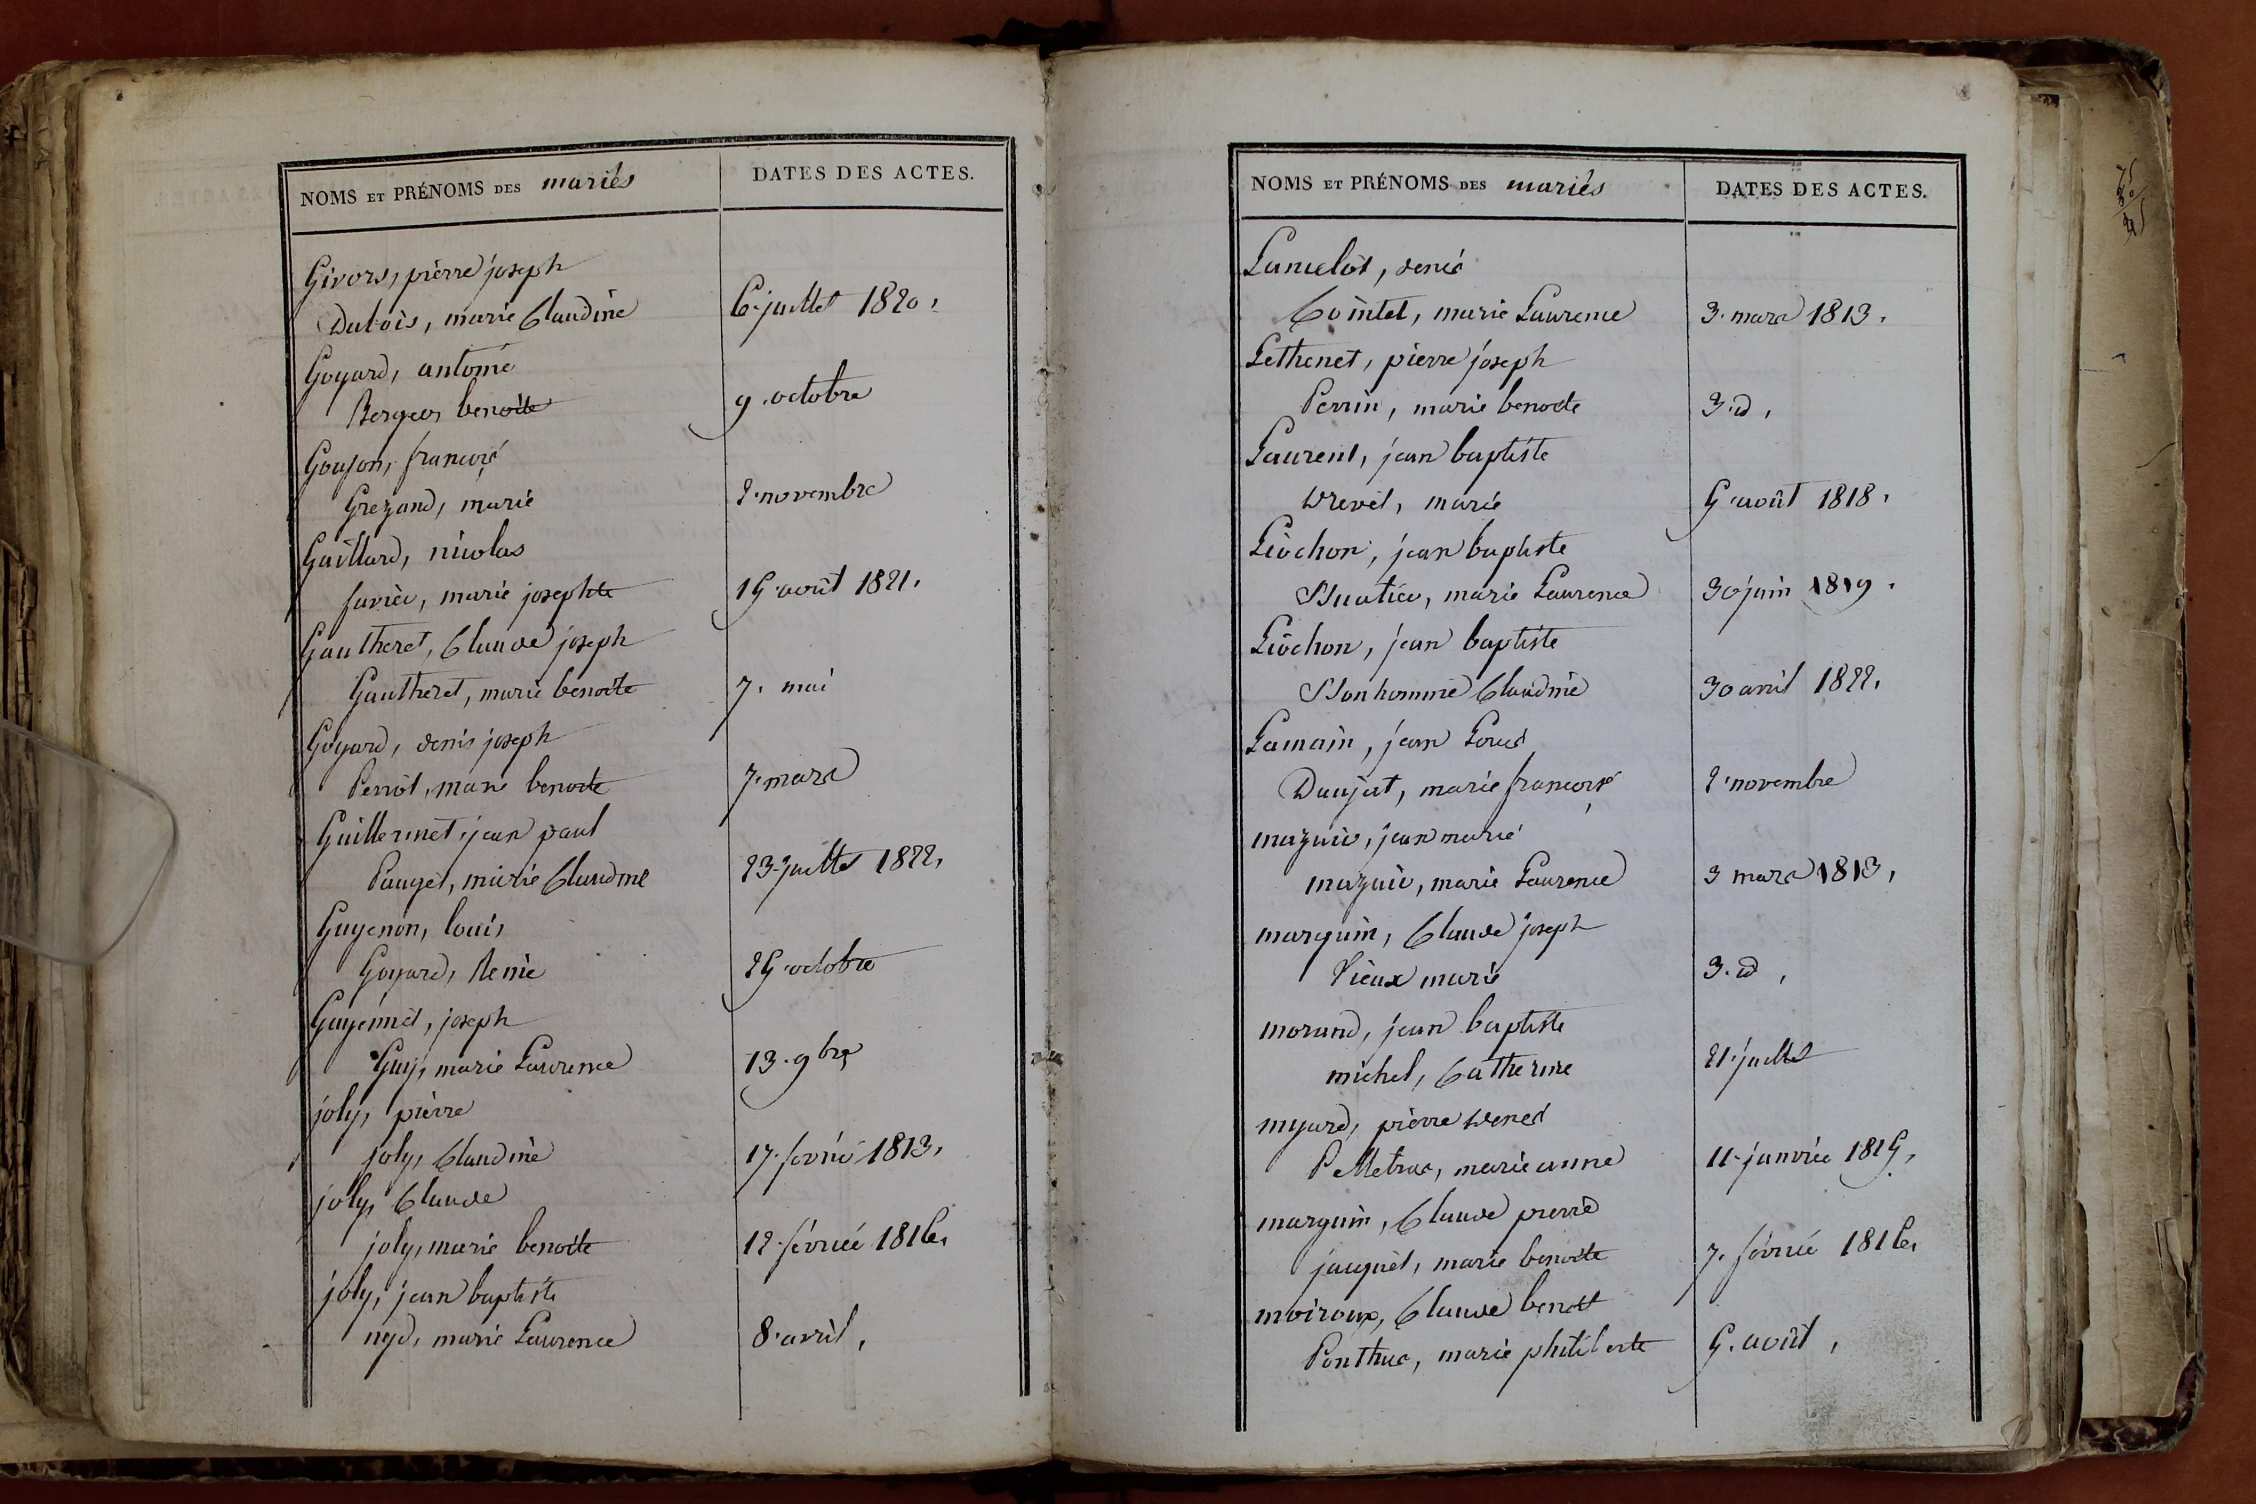 NOMS ET PRÉNOMS DES mariés
DATES DES ACTES.
Givors, pierre joseph
Dubois, marie Claudine 6. juillet 1820.
Goyard, antoine
Berger, benoîte 9. octobre
Goujon, françois
Grezand, marie 2. novembre
Gaillard, nicolas
favier, marie josephte 15 août 1821.
Gautheret, Claude joseph
Gautheret, marie benoîte 7. mai
Goyard, denis joseph
Perrot, marie benoîte 7. mars
Guillermet, jean paul
Pauget, marie Claudine 23. juillet 1822.
Guyenon, louis
Goyard, Renée 25 octobre
Guyennet, joseph
Guy, marie Laurence 13. 9bre
joly, pierre
joly, Claudine 17. février 1813.
joly, Claude
joly, marie benoîte 12. février 1816.
joly, jean baptiste
nyd, marie Laurence 8. avril,
NOMS ET PRÉNOMS DES mariés
DATES DES ACTES.
Lancelot, denis
Cointet, marie Laurence 3. mars 1813.
Lethenet, pierre joseph
Perrin, marie benoîte 3. id,
Laurent, jean baptiste
Drevet, marie 5 août 1818.
Liochon, jean baptiste
marie Laurence 30 juin 1819.
Liochon, jean baptiste
Bonhomme Claudine 30 avril 1822.
Lamain, jean Louis
Daujat, marie françoise 2. novembre
mazuir, jean marie
mazuir, marie Laurence 3 mars 1813.
marguin, Claude joseph
Vieux marie 3. id,
morand, jean baptiste
michel, Catherine 21. juillet
myard, pierre denis
marie anne 11. janvier 1815.
marguin, Claude pierre
jacquet, marie benoîte 7. février 1816.
moiroux, Claude benoît
Ponthus, marie philiberte 5. août,